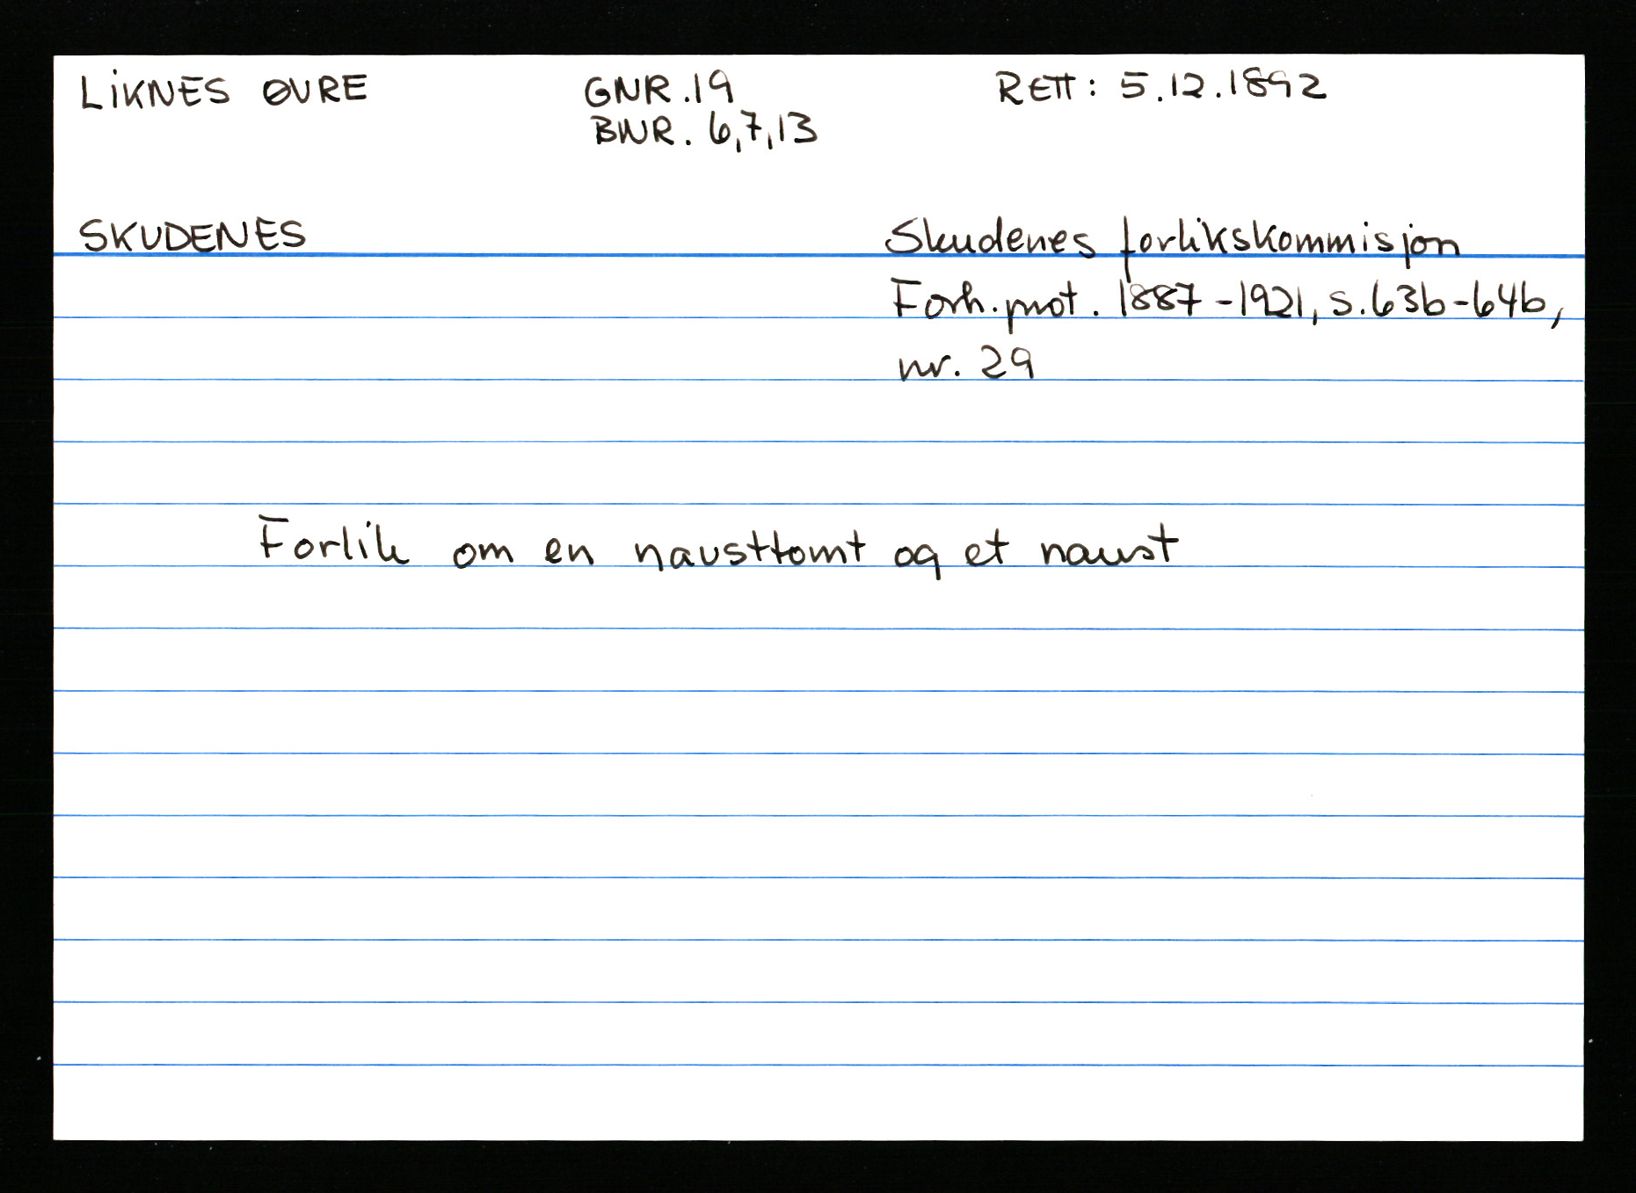 LIKNES ØVRE GNR. 19 RETT: 5.12.1892
BNR. 6,7,13
SKUDENES Skudenes forlikskommisjon
Forh.prot. 1887-1921, s.63b-64b,
nr. 29
Forlik om en nausttomt og et naust